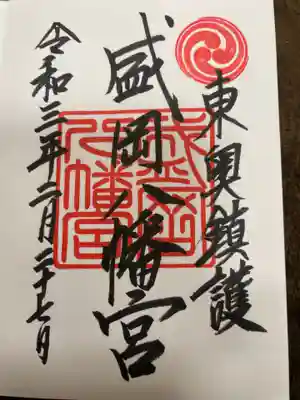 東奥鎮護
盛岡八幡宮
盛岡
八幡宮
令和三年二月二十七日